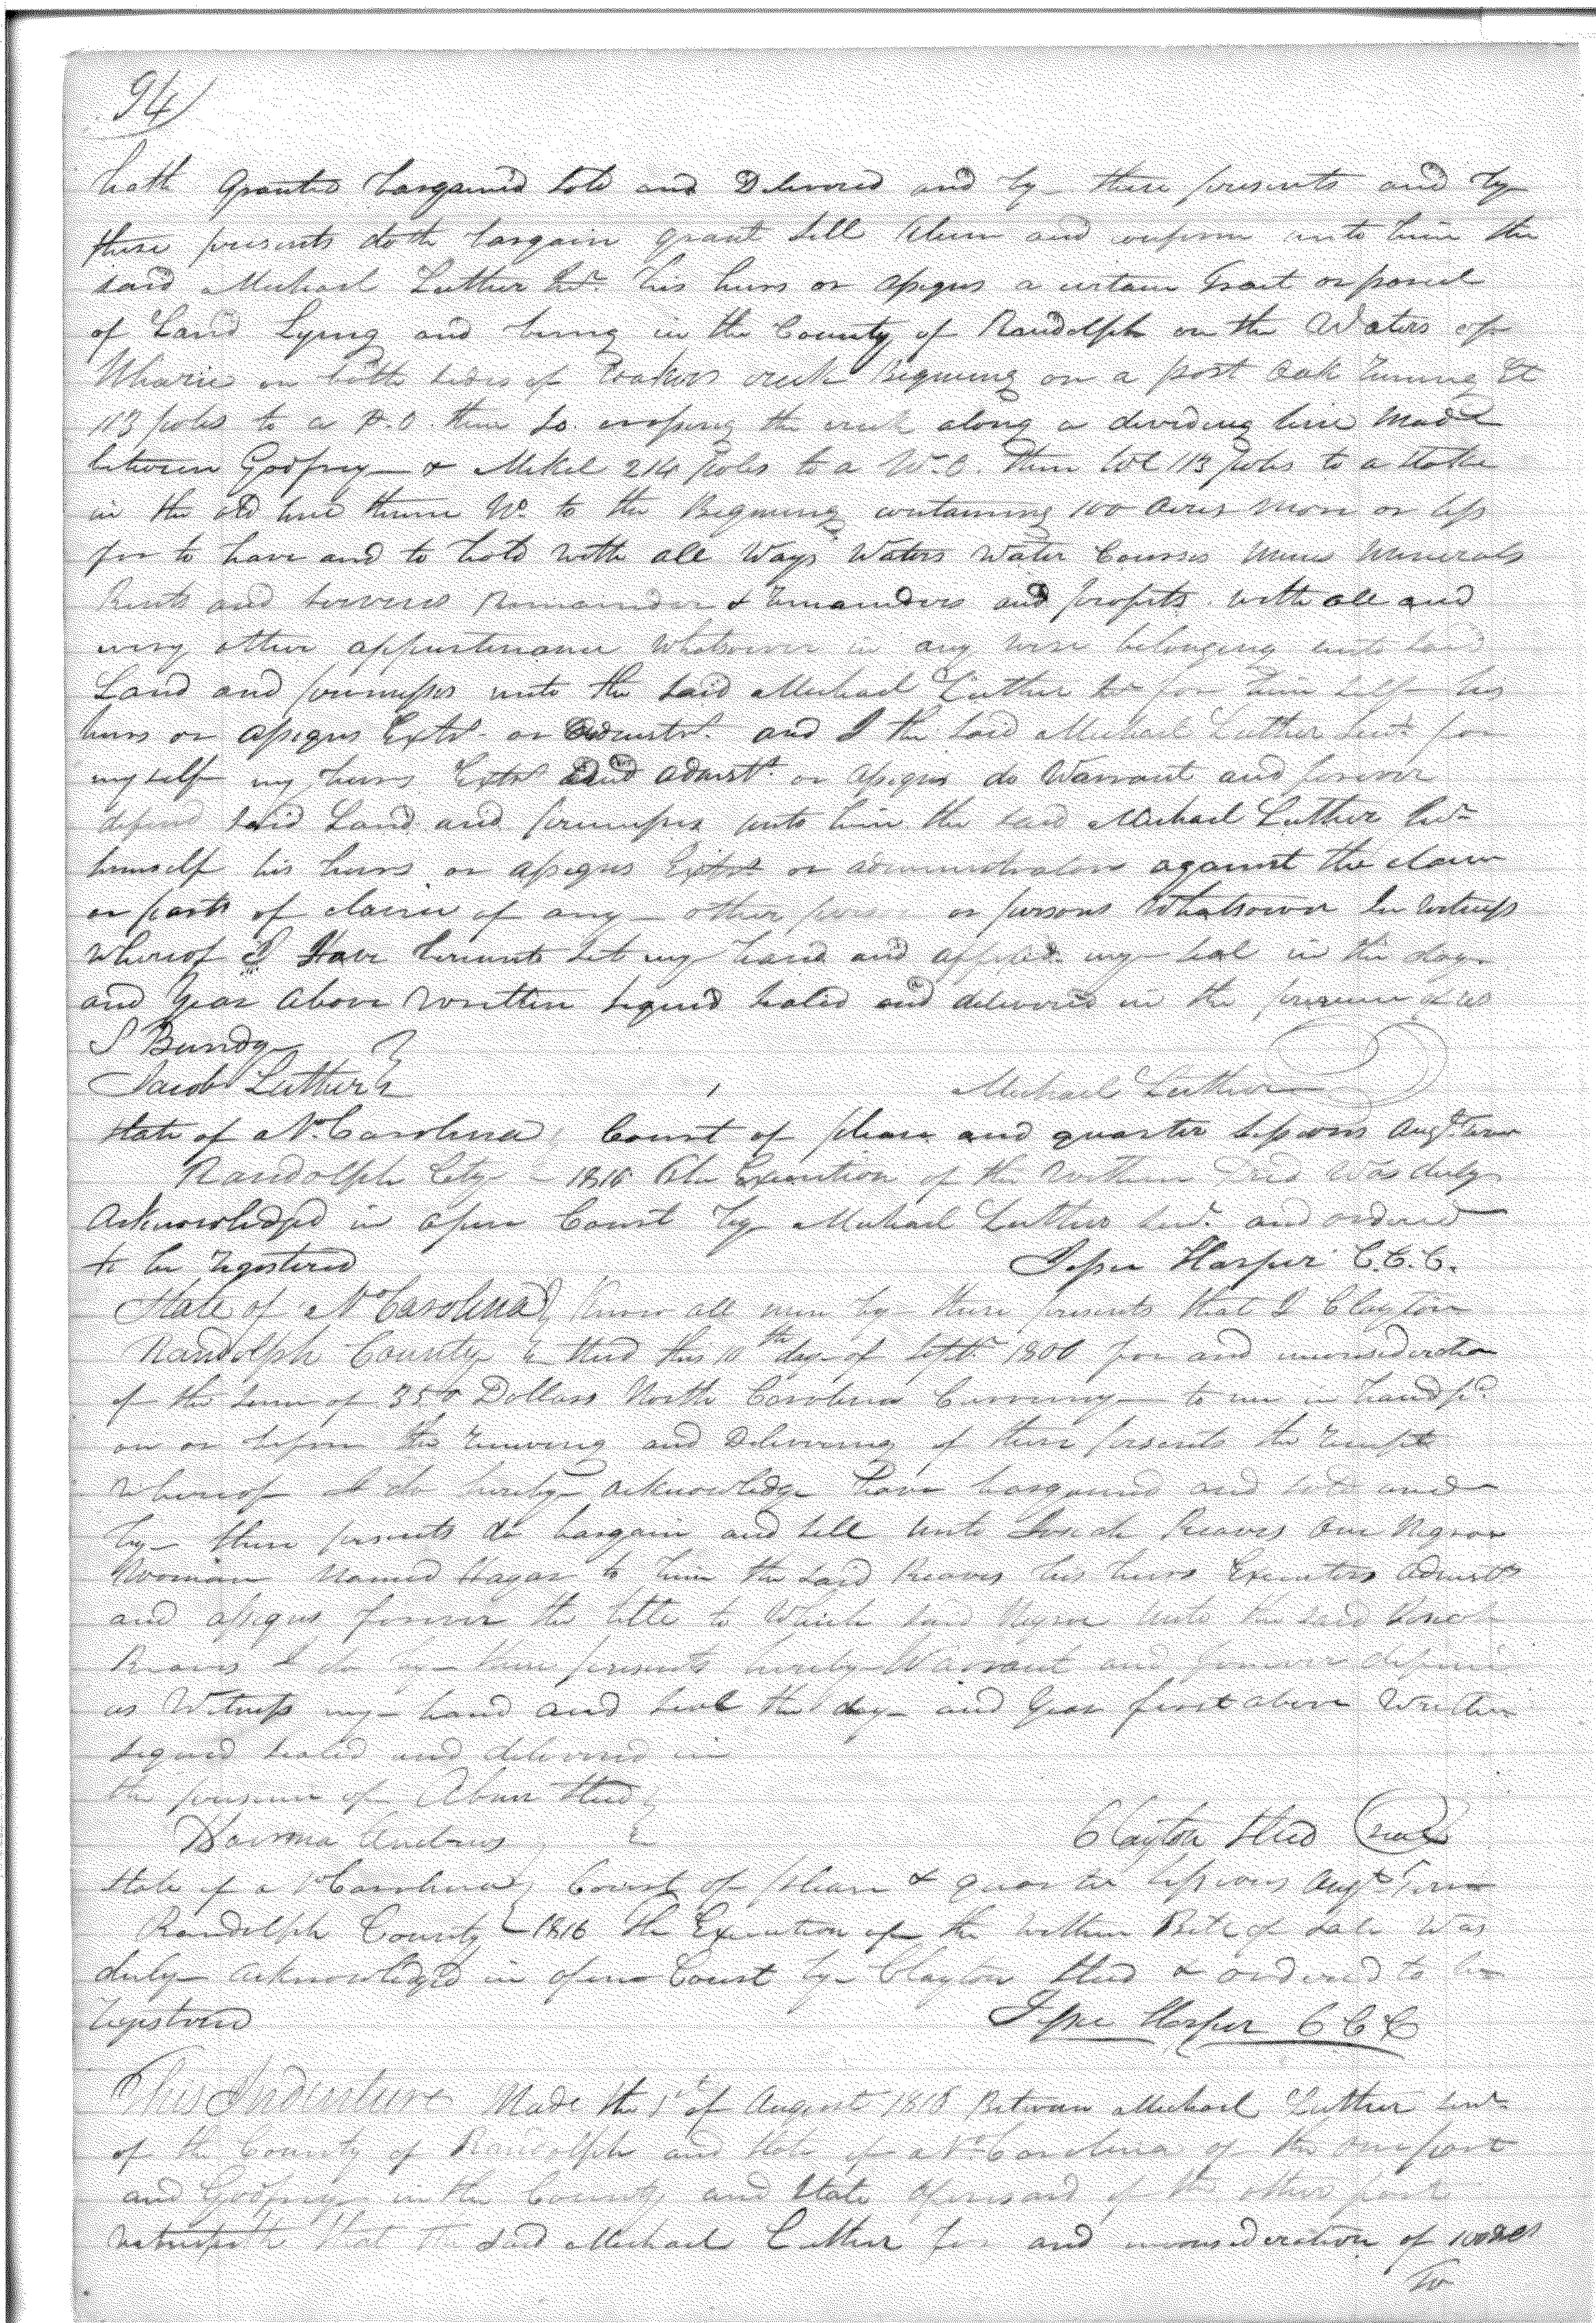 94
hath Granted bargained Sold and Delivered and by these presents and by
these presents doth bargain grant Sell Alien and confirm unto him the
said Michael Luther Jur. his heirs or assigns a certain Tract or parcel
of Land Lying and being in the County of Randolph on the Waters of
Uharie on both sides of creek Begining on a post Oak Runing Et
113 poles to a P.O then So. crossing the creek along a dividing line made
between Godfrey & Mikel 214 poles to a W.O. then We 113 poles to a stake
in the old line thence No. to the Begining containing 100 acres more or less
for to have and to hold with all Ways Waters Water Courses mines minerals
Rents and Services Remainder & Remainders and profits with all and
every other appurtenance Whatsoever in any wise belonging unto said
Land and premises unto the said Michael Luther Jur for him self his
heirs or assigns Extrs. or Admistrs. and I the said Michael Luther Senr. for
my self my heirs Extrs and admrs. or assigns do Warrant and forever
defend said Land and premises unto him the said Michael Luther Jur
himself his heirs or assigns Extrs or administrators against the claim
or parts of claim of any other person or persons Whatsoever In witness
Whereof I Have hereunto Set my hand and affixed my seal in the day
and Year above written Signed Sealed and delivered in the presence of us
S Bundy
Jacob Luther Michael Luther
State of No. Carolina Court of pleas and quarter Sessions Augt. Term
Randolph Cty 1816 The Execution of the within Deed Was duly
Acknowledged in open Court by Michael Luther Senr. and ordered
to be registered Jesse Harper C.C.C.
State of No Carolina Know all men by these presents that I Clayton
Randolph County Steed this 10th day of Septr. 1800 for and inconsideration
of the Sum of 350 Dollars North Carolina Currency to me in hand pd
on or before the Ensealing and Delivering of these presents the receipt
Whereof I do hereby acknowledge have bargained and sold and
by these presents do bargain and sell unto Reaves One Negroe
Woman Named Hagar to him the said Reaves his heirs Executors Admrs
and assigns forever the title to Which said Negroe unto the said
Reaves I do by these presents hereby Warrant and forever defend
as Witness my hand and Seal the day and Year first above Written
Signed Sealed and delivered in
the presence of Abner Steed
Andrews Clayton Steed Seal
State of No Carolina Court of pleas & quarter Sessions Augt Term
Randolph County 1816 The Execution of the within Bill of Sale Was
duly acknowledged in open Court by Clayton Steed & ordered to be
registered Jesse Harper C C C
This Indenture Made the 1st of August 1816 Between Michael Luther Senr
of the County of Randolph and State of No. Carolina of the one part
and Godfrey in the County and State aforesaid of the other part
witnesseth that the said Michael Luther for and inconsideration of
to